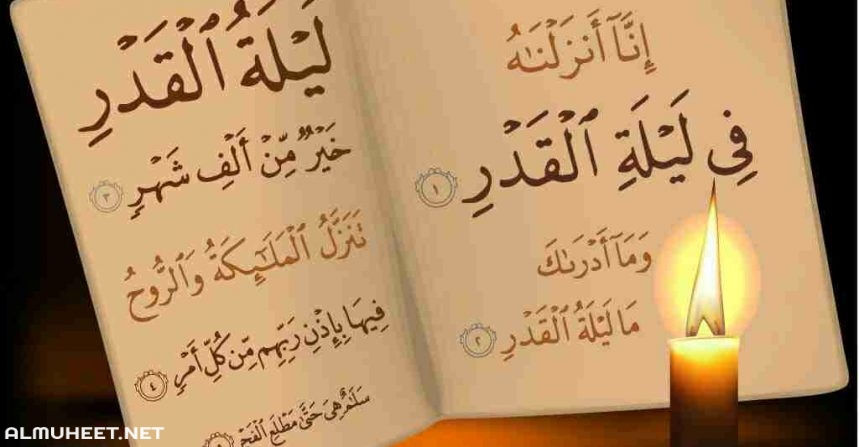 إِنَّآ أَنزَلْنَٰهُ
فِى لَيْلَةِ ٱلْقَدْرِ ١
وَمَآ أَدْرَىٰكَ
مَا لَيْلَةُ ٱلْقَدْرِ ٢
لَيْلَةُ ٱلْقَدْرِ
خَيْرٌ مِّنْ أَلْفِ شَهْرٍ ٣
تَنَزَّلُ ٱلْمَلَٰٓئِكَةُ وَٱلرُّوحُ
فِيهَا بِإِذْنِ رَبِّهِم مِّن كُلِّ أَمْرٍ ٤
سَلَٰمٌ هِىَ حَتَّىٰ مَطْلَعِ ٱلْفَجْرِ
ALMUHEET.NET